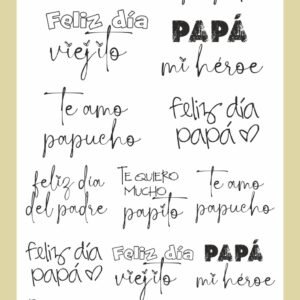 Feliz día
viejito
PAPÁ
mi héroe
te amo
papucho
feliz día
papá
feliz día
del padre
TE QUIERO
MUCHO
papito
te amo
papucho
feliz día
papá
Feliz día
viejito
PAPÁ
mi héroe